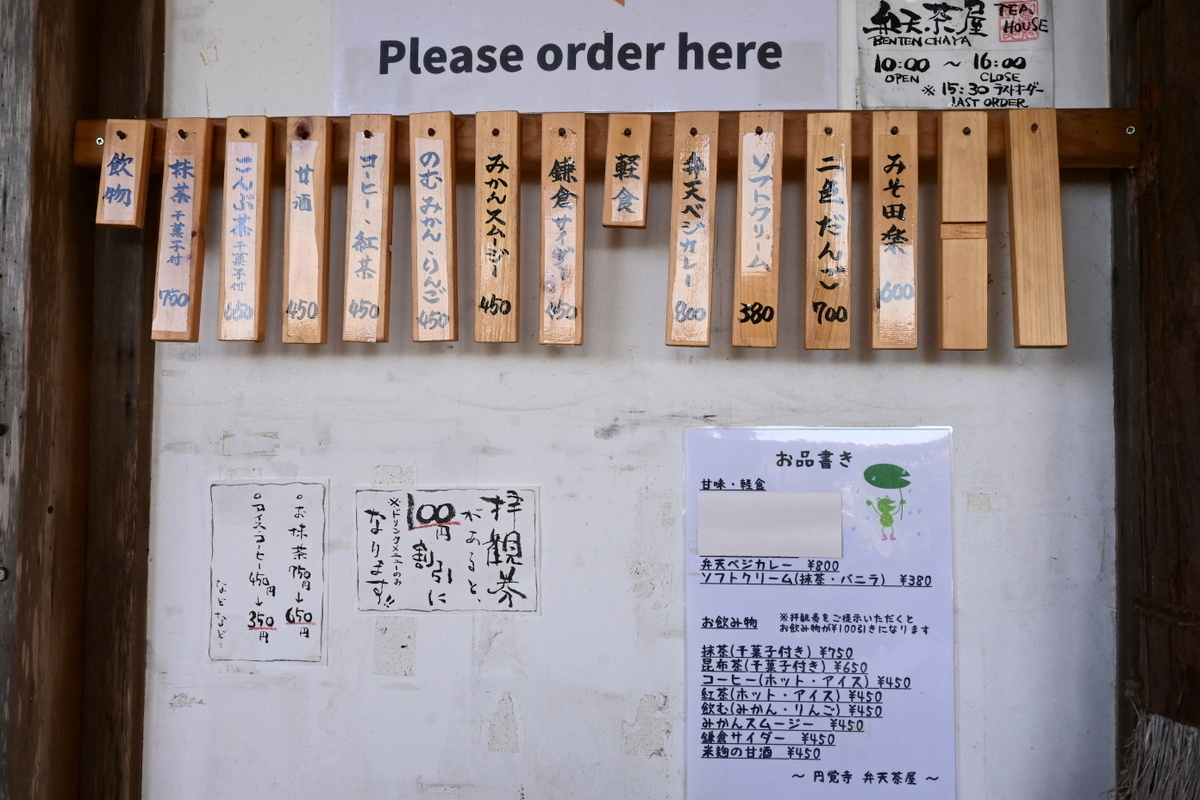 Please order here
弁天茶屋
TEA HOUSE
BENTEN CHAYA
10:00 ~ 16:00
OPEN CLOSE
※15:30 ラストオーダー
LAST ORDER
飲物
抹茶 干菓子付 750
こんぶ茶 干菓子付 650
甘酒 450
コーヒー、紅茶 450
のむみかん、りんご 450
みかんスムージー 450
鎌倉サイダー 450
軽食
弁天ベジカレー 800
ソフトクリーム 380
二色だんご 700
みそ田楽 600
拝観券
があると、
100円
割引に
※ドリンクメニューのみ
なります!!
○お抹茶 750円→650円
○アイスコーヒー 450円→350円
などなど
お品書き
甘味・軽食
弁天ベジカレー ¥800
ソフトクリーム(抹茶・バニラ) ¥380
お飲み物
※拝観券をご提示いただくと
お飲み物が¥100引きになります
抹茶(干菓子付き) ¥750
昆布茶(干菓子付き) ¥650
コーヒー(ホット・アイス) ¥450
紅茶(ホット・アイス) ¥450
飲む(みかん・りんご) ¥450
みかんスムージー ¥450
鎌倉サイダー ¥450
米麹の甘酒 ¥450
～ 円覚寺 弁天茶屋 ～